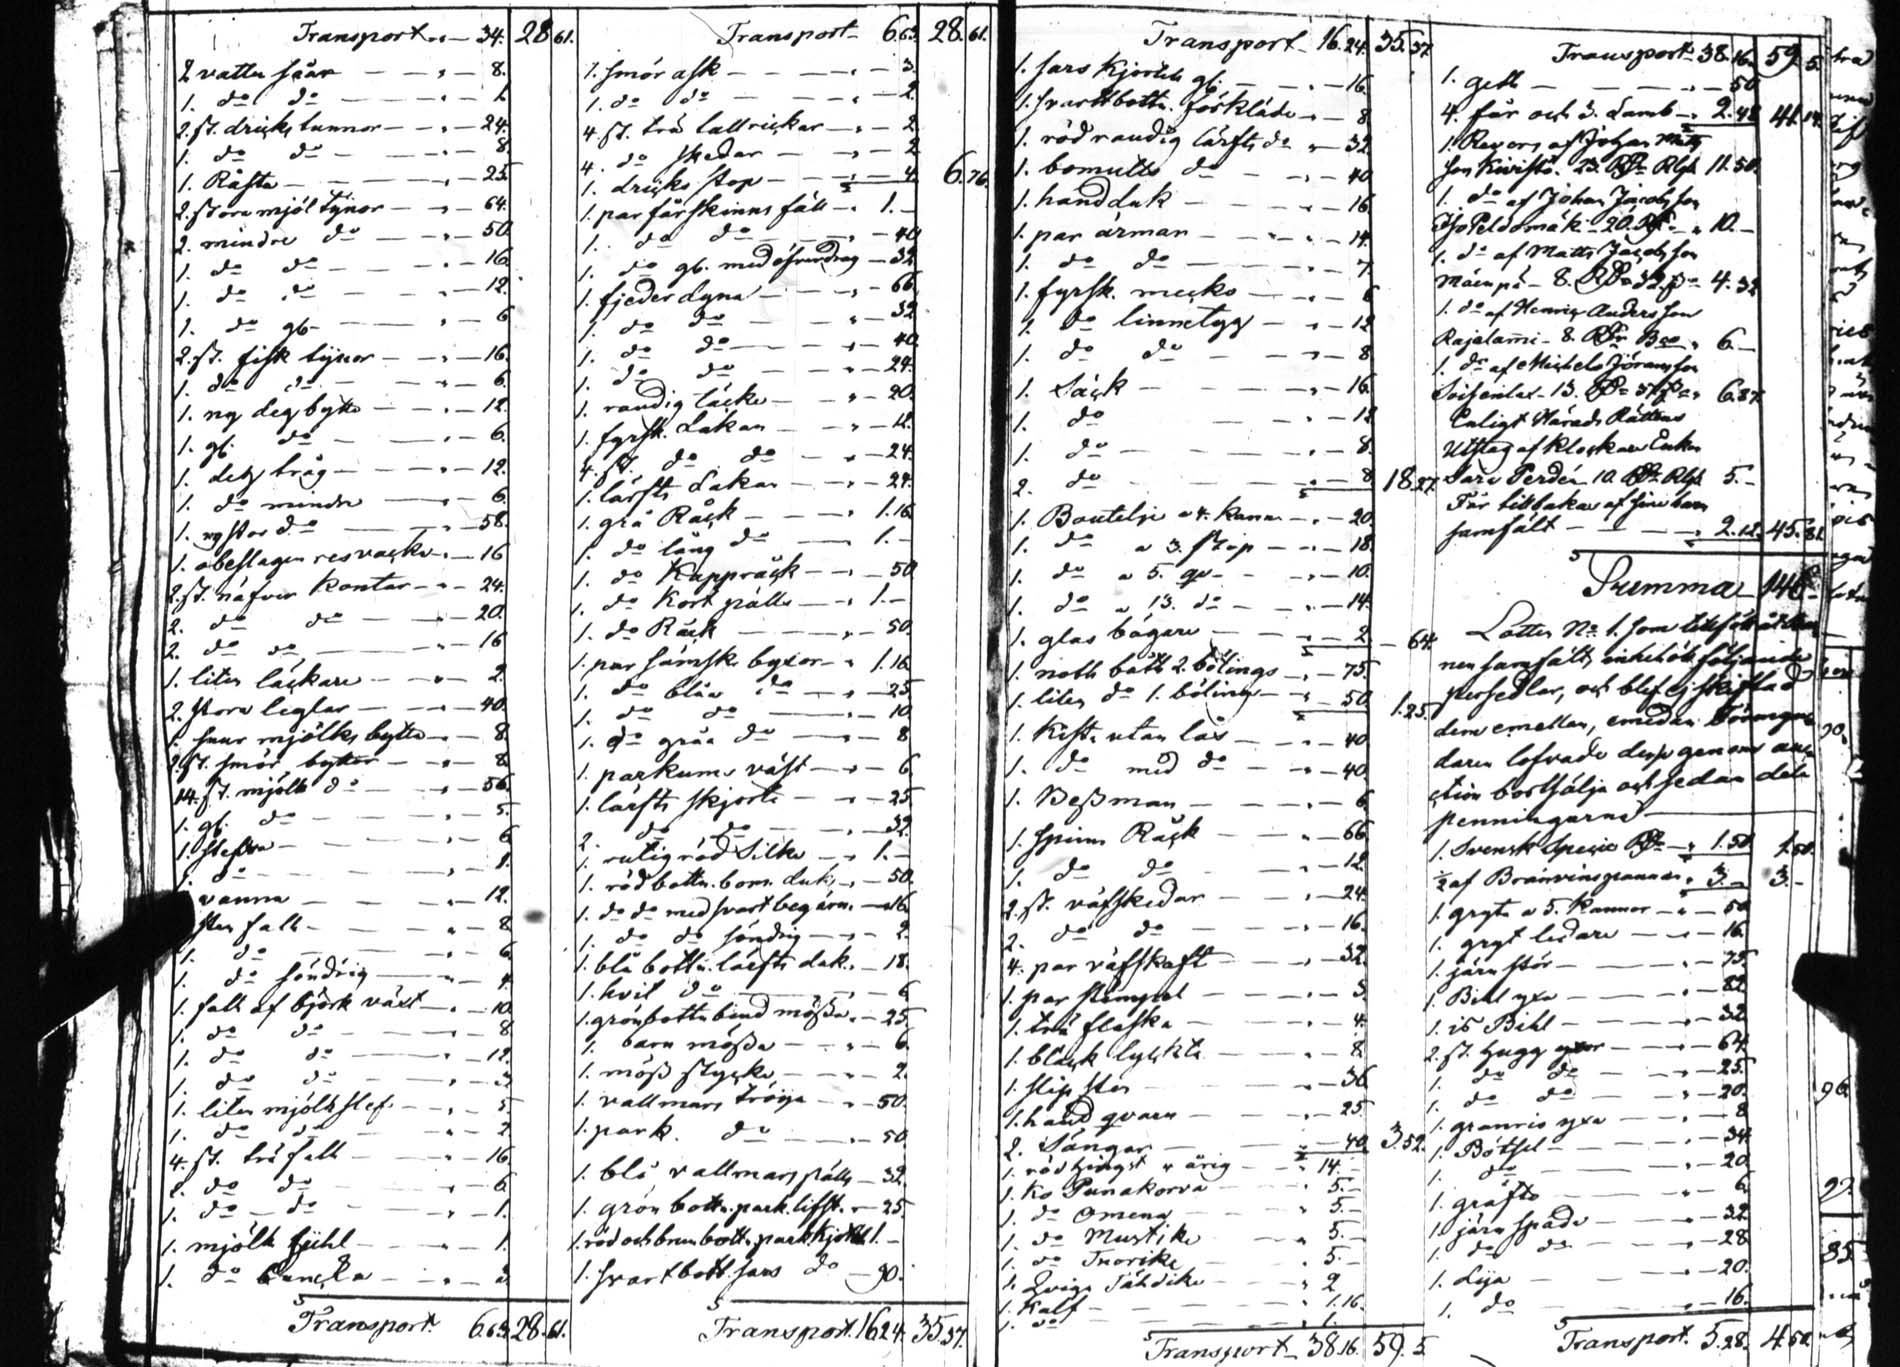 Transport - 34. 28 61.
2 vattu såar - 8.
1. do do - 1.
2. st. dricks tunnor - 24.
1. do do - 8.
1. - 25.
2. stora mjöl tynor - 64.
2. mindre do - 50.
1. do do - 16.
1. do do - 12.
1. do gl. - 6
2. st. fisk tynor - 16.
1. do do - 6.
1. ny deg bytta - 12.
1. gl. do - 6.
1. deg tråg - 12.
1. do mindre - 6.
1. ny stor do - 58.
1. obeslagen res - 16
2. st. näfver kontar - 24.
2. do do - 20.
2. do do - 16
1. liten läckare - 2.
2. stora leglar - 40.
1. mjölks bytta - 8.
2. st. smör byttor - 8.
14. st. mjölk do - 56.
1. gl. do - 5.
1. Stefva - 6
1. do - 1.
vanna - 12.
fatt - 8
1. do - 6.
1. do söndrig - 4
1. fatt af björk växt - 10.
1. do do - 8
1. do do - 12.
1. do do - 3
1. liten mjölk stef. - 5.
1. do do - 2
4. st. trä fatt - 16.
1. do do - 6.
1. do do - 1.
1. mjölk - 1.
1. do - 3
Transport. 6.63. 28.61.
Transport - 6.63. 28.61.
1. smör ask - 3.
1. do do - 2.
4. st. trä tallrickar - 2.
4. do skedar - 2
1. dricks stop - 4. 6.76.
1. par fårskinns fäll - 1.-
1. do do - 40
1. do gl. med öfverdrag - 32.
1. fjeder dyna - 66.
1. do do - 32
1. do do - 40.
1. do do - 24.
1. randig täcke - 20.
1. fyrsk. Lakan - 12.
4. st. do do - 24.
1. lärfts Lakan - 24.
1. grå Råck - 1.16.
1. do lång do - 1.-
1. do Kappråck - 50
1. do Kort pälts - 1.-
1. do Råck - 50.
1. par sämsk. byxor - 1.16.
1. do blåa do - 25.
1. do do - 10.
1. do gråa do - 8
1. parkums väst - 6.
1. lärfts skjorta - 25.
2. do do - 32.
1. rutig röd Silke - 1.-
1. röd bottn. bom. duk - 50.
1. do do med svart begärn. - 16.
1. do do söndrig - 2.
1. blå bottn. lärfts duk. - 18.
1. hvit do - 6.
1. grönbottn bind mössa - 25.
1. barn mössa - 6.
1. möss stycke - 2.
1. vallmars tröja - 50.
1. park. do - 50.
1. blå vallmars pälts - 32.
1. grön bottn. park. lifst. - 25.
1. röd och brun bottn. park. Kjortel 1.-
1. svart bott. sars do - 90.
Transport. 16.24. 35.37.
Transport - 16.24. 35.37.
1. sars Kjortel gl. - 16.
1. svartbottn. förkläde - 8
1. röd randig lärfts do - 32
1. bomulls do - 40
1. handduk - 16.
1. par ärmar - 14.
1. do do - 7.
1. fyrsk. - 6
1. do linnetyg - 12
1. do do - 8
1. Säck - 16.
1. do - 12
1. do - 8.
2. do - 8 18.27.
1. Boutelje a 4. kann. - 20.
1. do a 3. stop - 18.
1. do a 5. qv. - 10.
1. do a 13. do - 14.
1. glas bägare - 2. - 64.
1. noth båth 2. bölings - 75.
1. liten do 1. böling - 50. 1.25.
1. Kista utan lås - 40
1. do med do - 40.
1. Bessman - 6
1. Spinn Råck - 66
1. do do - 12.
2. st. väfskedar - 24.
2. do do - 16.
4. par väfskaft - 32.
1. par stämpel - 3.
1. trä flaska - 4.
1. bläck lyckta - 8
1. slip sten - 36.
1. hand qvarn - 25
2. Sängar - 40. 3.52.
1. röd hingst 4 årig - 14.-
1. Ko Punakorva - 5.-
1. do Omena - 5.-
1. do Mustike - 5.-
1. do - 5.-
1. Qviga Tähdike - 2
1. Kalf - 1.16.
1. do - 1.
Transport - 38.16. 59.5.
Transport - 38.16. 59.5.
1. gett - 50
4. får och 3. Lamb - 2.48. 41.14.
1. Revers af Johan Mats
son Kivistö. 23. Rdr Rgs 11.50.
1. do af Johan Jacobsson
Peldomäk - 20. Rdr - 10.-
1. do af Matts Jacobsson
Mäenpä - 8. Rdr 32 - 4.32
1. do af Henric Andersson
Rajalami - 8. Rdr Bco - 6.-
1. do af Michels Jöransson
- 13. Rdr 37 - 6.87.
Enligt Härads Rättens
Utslag af Klockare Enkan
Sara Perdén 10. Rdr Rgs 5.-
Får tillbakar af
samfält - 2.12. 45.81.
Summa - 146.-
Lotten No 1. som tillföll
nen samfält, innehöll följande
persedlar, och blef ej skiftad
dem emellan, emedan Förmyn
daren lofvade dessa genom auc
tion bortsälja och sedan dela
penningarne -
1. Svensk Specie Rdr - 1.50 1.50.
½ af Bränvinspannan - 3.- 3.-
1. gryta a 5. kannor - 50
1. gryt ledare - 16.
1. järn stör - 75.
1. Bihl yxa - 82.
1. is Bihl - 32
2. st. hugg yxor - 64.
1. do do - 25.
1. do do - 20.
1. granris yxa - 8
1. Bötsel - 34.
1. do - 20.
1. gräfta - 6
1. järn spade - 32
1. do do - 28
1. Lija - 20.
1. do - 16.
Transport. 5.28. 4.50.